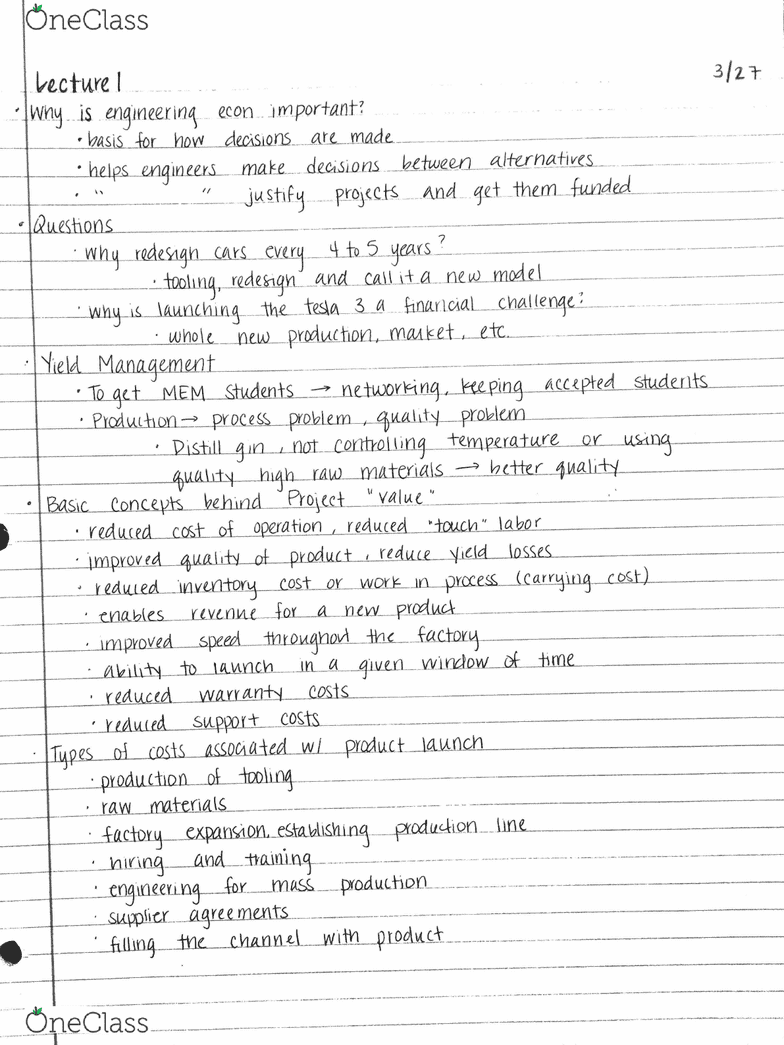 OneClass
Lecture 1 3/27
· Why is engineering econ important?
· basis for how decisions are made
· helps engineers make decisions between alternatives
· " " justify projects and get them funded
· Questions
· Why redesign cars every 4 to 5 years?
· tooling, redesign and call it a new model
· why is launching the tesla 3 a financial challenge?
· whole new production, market, etc.
· Yield Management
· To get MEM students → networking, keeping accepted students
· Production → process problem, quality problem
· Distill gin, not controlling temperature or using
quality high raw materials → better quality
· Basic concepts behind Project "value"
· reduced cost of operation, reduced "touch" labor
· improved quality of product, reduce yield losses
· reduced inventory cost or work in process (carrying cost)
· enables revenue for a new product
· improved speed throughout the factory
· ability to launch in a given window of time
· reduced warranty costs
· reduced support costs
· Types of costs associated w/ product launch
· production of tooling
· raw materials
· factory expansion, establishing production line
· hiring and training
· engineering for mass production
· supplier agreements
· filling the channel with product
OneClass